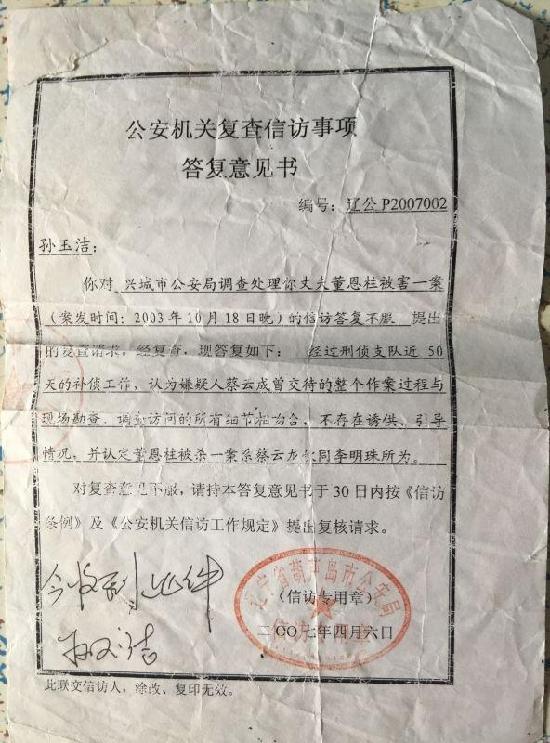 公安机关复查信访事项
答复意见书
编号：辽公P2007002
孙玉洁：
你对 兴城市公安局调查处理你丈夫董恩柱被害一案
（案发时间：2003年10月18日晚）的信访答复不服 提出
的复查请求，经复查，现答复如下： 经过刑侦支队近50
天的补侦工作，认为嫌疑人蔡云成曾交待的整个作案过程与
现场勘查、调查访问的所有细节相吻合，不存在诱供、引导
情况，并认定董恩柱被杀一案系蔡云 李明珠所为。
对复查意见不服，请持本答复意见书于30日内按《信访
条例》及《公安机关信访工作规定》提出复核请求。
今收到此件
孙玉洁
辽宁省葫芦岛市公安局
（信访专用章）
二〇〇七年四月六日
此联交信访人，涂改、复印无效。